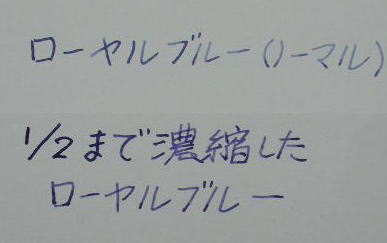 ローヤルブルー(ノーマル)
1/2まで濃縮した
ローヤルブルー